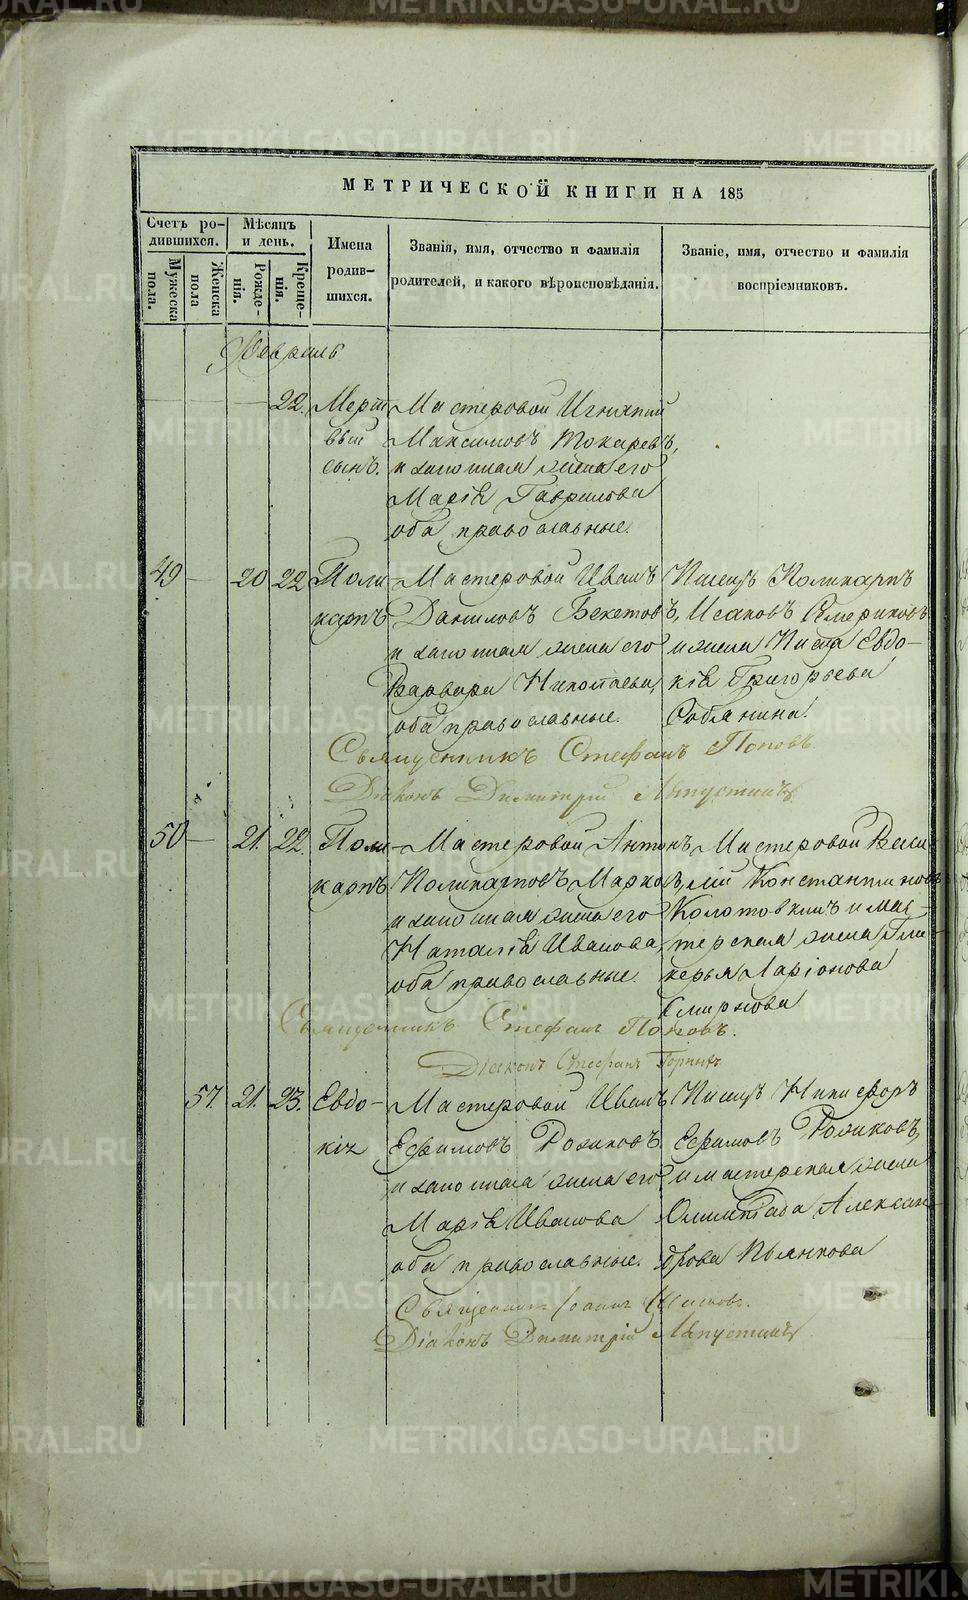 МЕТРИЧЕСКОЙ КНИГИ НА 185
Счетъ ро-
дившихся.
Мужеска
пола.
Женска
пола
Мѣсяцъ
и день.
Рожде-
нія.
Креще-
нія.
Имена
родив-
шихся.
Званія, имя, отчество и фамилія
родителей, и какого вѣроисповѣданія.
Званіе, имя, отчество и фамилія
воспріемниковъ.
Февраль
22. Мерт
вый
сынъ.
Мастеровой Игнатій
Максимовъ Токаревъ,
и законная жена его
Марія Гаврилова
оба православные.
49 — 20 22 Поли-
карпъ
Мастеровой Иванъ
Даниловъ Бекетовъ,
и законная жена его
Варвара Николаева,
оба православные.
Писецъ Поликарпъ
Исаковъ
и жена Писца Евдо-
кія Григорьева
Собянина.
Священникъ Стефанъ Поповъ
Діаконъ Димитрій
50 — 21. 22. Поли-
карпъ
Мастеровой Антонъ
Поликарповъ Марковъ,
и законная жена его
Наталія Иванова,
оба православные.
Мастеровой Васи-
лій Константиновъ
Колотовкинъ и мас-
терская жена Гли-
керья Ларіонова
Смирнова
Священникъ Стефанъ Поповъ.
Діаконъ Стефанъ
57. 21. 23. Евдо-
кія
Мастеровой Иванъ
Ефимовъ Рожиковъ
и законная жена его
Марія Иванова
оба православные.
Писецъ Никифоръ
Ефимовъ Рожиковъ,
и мастерская жена
Олимпіада Алексан-
дрова Пьянкова
Священникъ Іоаннъ
Діаконъ Димитрій
METRIKI.GASO-URAL.RU